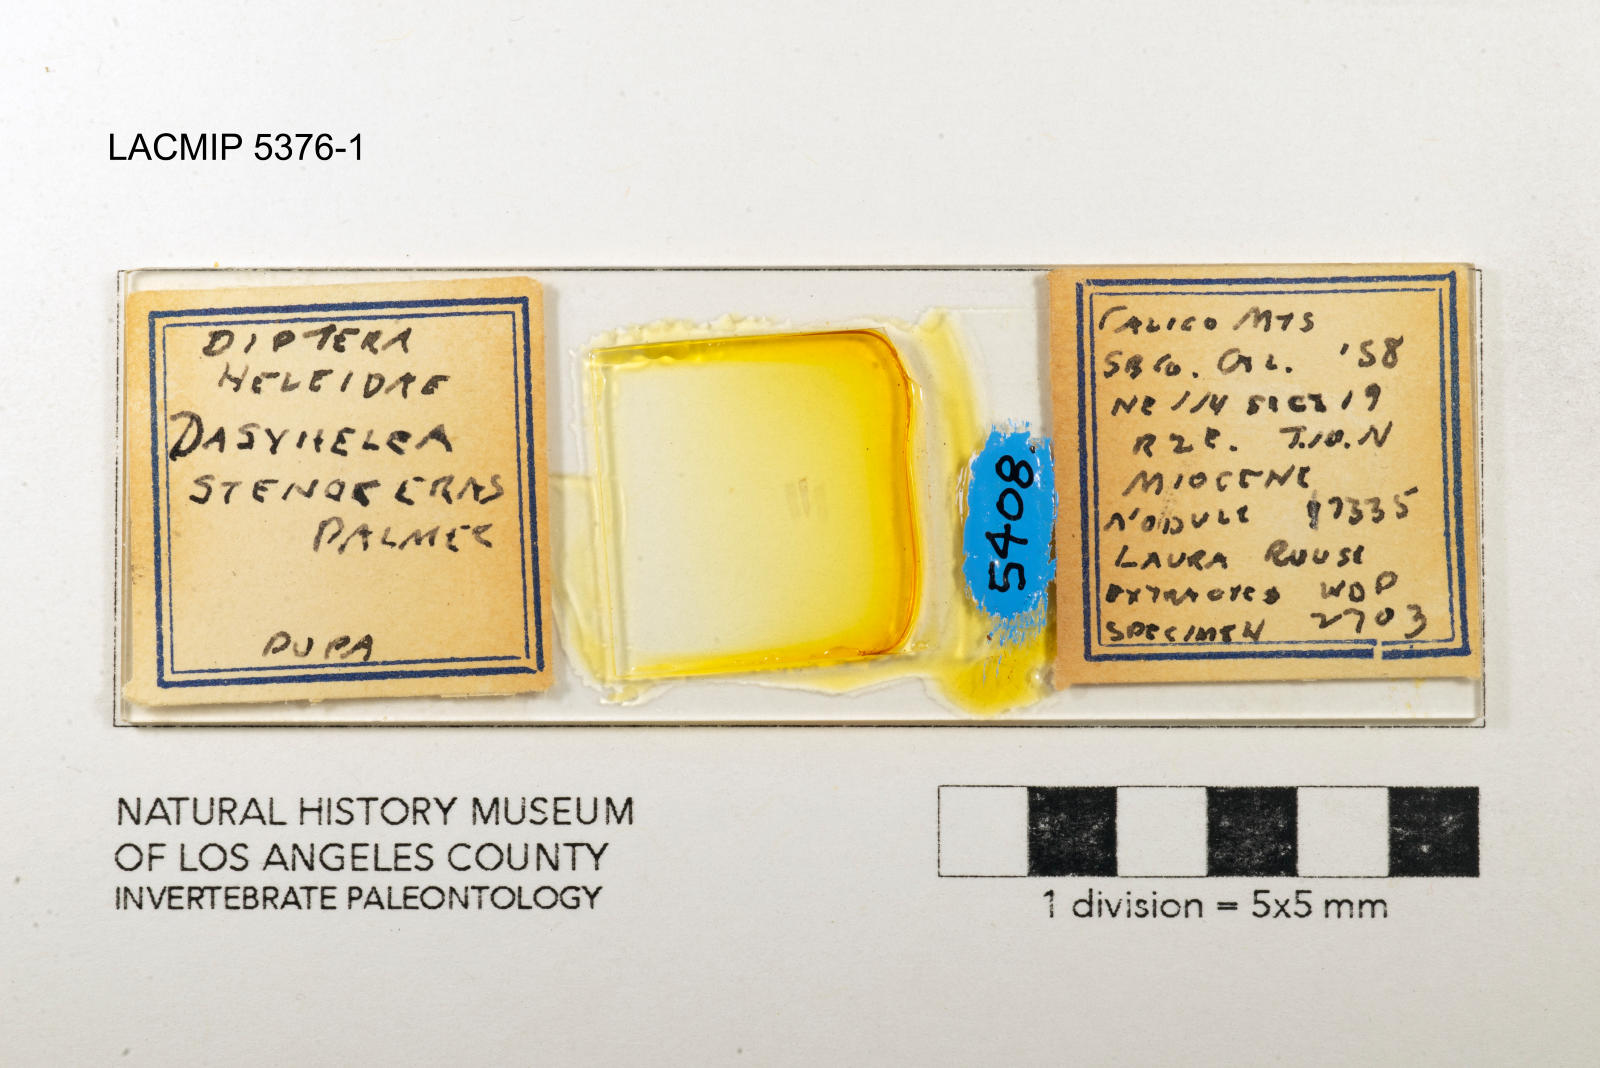 LACMIP 5376-1
DIPTERA
HELEIDAE
DASYHELEA
STENOCERAS
PALMER
PUPA
5408.
CALICO MTS
SB CO. CAL. '58
NE 1/4 SEC 19
R 2 E. T.10.N
MIOCENE
NODULE 17335
LAURA ROUSE
EXTRACTED WDP
SPECIMEN 2703
NATURAL HISTORY MUSEUM
OF LOS ANGELES COUNTY
INVERTEBRATE PALEONTOLOGY
1 division = 5x5 mm